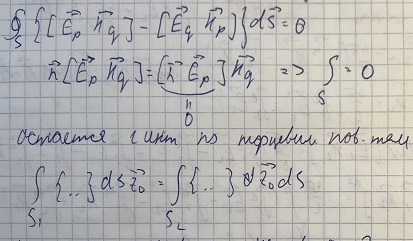 ∮_S {[E⃗_p H⃗_q] - [E⃗_q H⃗_p]} ds⃗ = 0
n⃗ [E⃗_p H⃗_q] = [n⃗ E⃗_p] H⃗_q => ∫_S = 0
"
0
остается 1 инт по торцевым пов-тям
∫_{S_1} {..} ds z⃗_0 = ∫_{S_2} {..} z⃗_0 ds